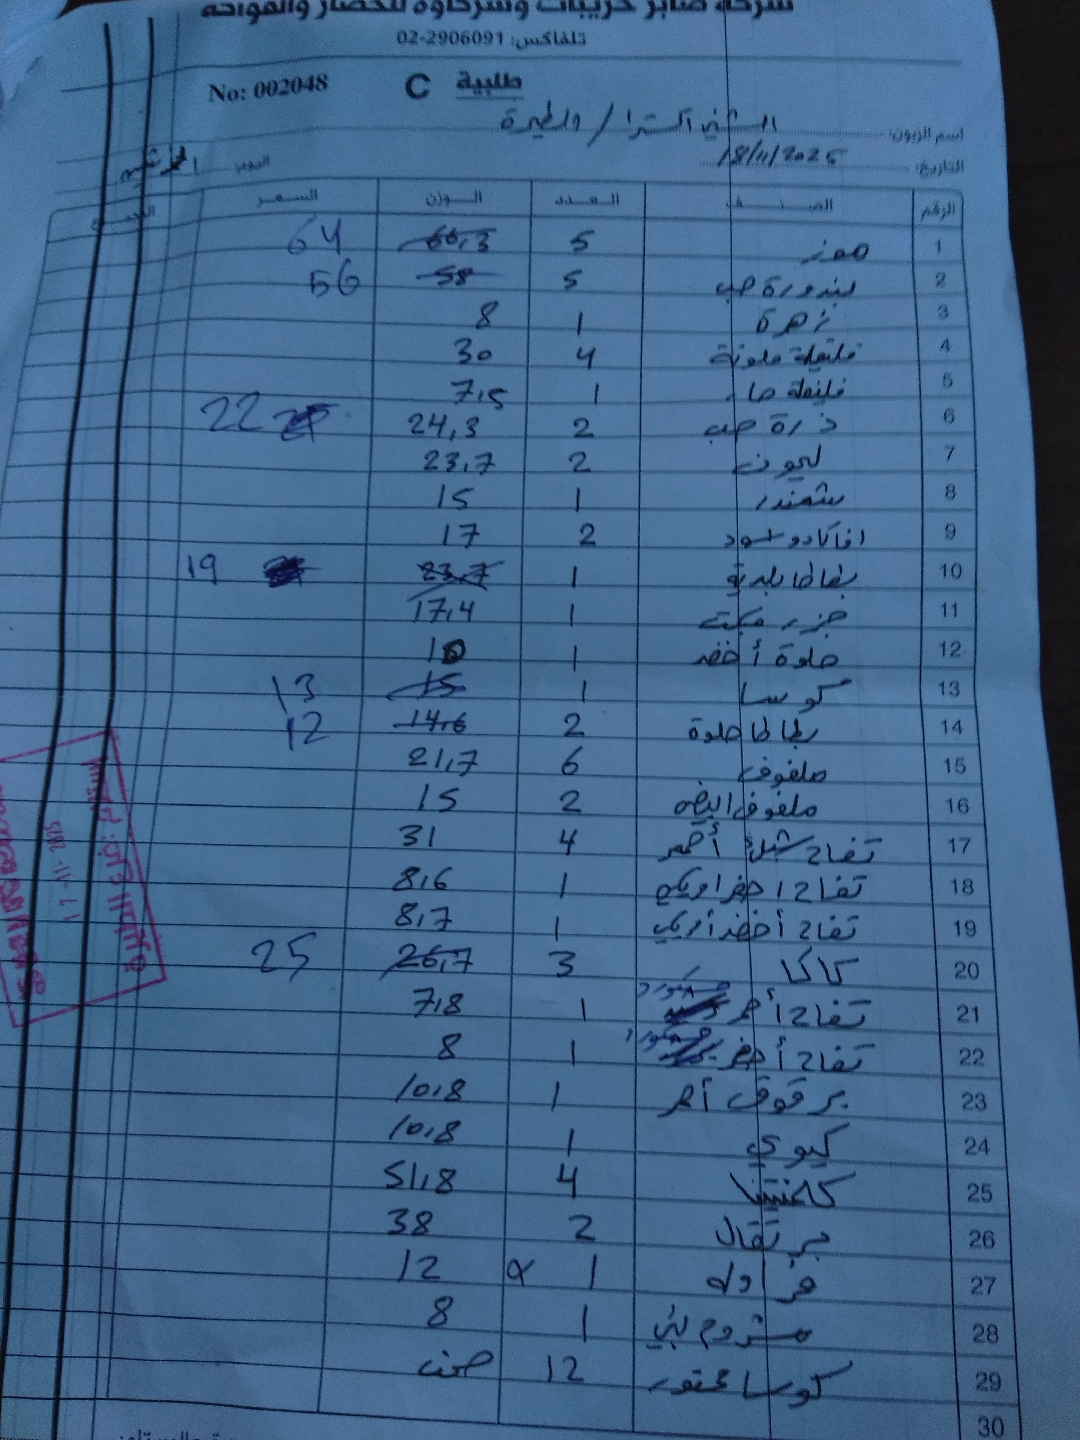 شركة صابر حريبات وشركاؤه للخضار والفواكه
تلفاكس: 02-2906091
No: 002048 C طلبية
اسم الزبون: اكسترا / الطيرة
التاريخ: 18/11/2025 اليوم:
الرقم الصنف العدد الوزن السعر المجموع
1 موز 5 66,3 64
2 بندورة حب 5 58 56
3 زهرة 1 8
4 فليفلة ملونة 4 30
5 فليفلة 1 7,5
6 ذرة حب 2 24,3 22
7 ليمون 2 23,7
8 شمندر 1 15
9 افاكادو اسود 2 17
10 بطاطا بلدية 1 23,7 19
11 جزر 1 17,4
12 أخضر 1 10
13 كوسا 1 15 13
14 بطاطا حلوة 2 14,6 12
15 ملفوف 6 21,7
16 ملفوف ابيض 2 15
17 تفاح أحمر 4 31
18 تفاح اصفر 1 8,6
19 تفاح أخضر 1 8,7
20 كاكا 3 26,7 25
21 تفاح أحمر 1 7,8
22 تفاح 1 8
23 برقوق أحمر 1 10,8
24 كيوي 1 10,8
25 كلمنتينا 4 51,8
26 برتقال 2 38
27 فراولة 1 α 12
28 مشروم بني 1 8
29 كوسا محفور 12 صحن
30